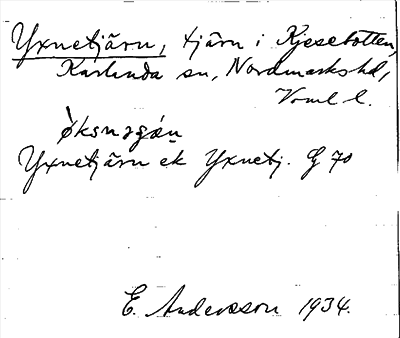 Yxnetjärn, tjärn i Kjesebotten,
Karlanda sn, Nordmarks hd,
Vrml l.
Yxnetjärn ek Yxnetj. G 70
E. Andersson 1934.